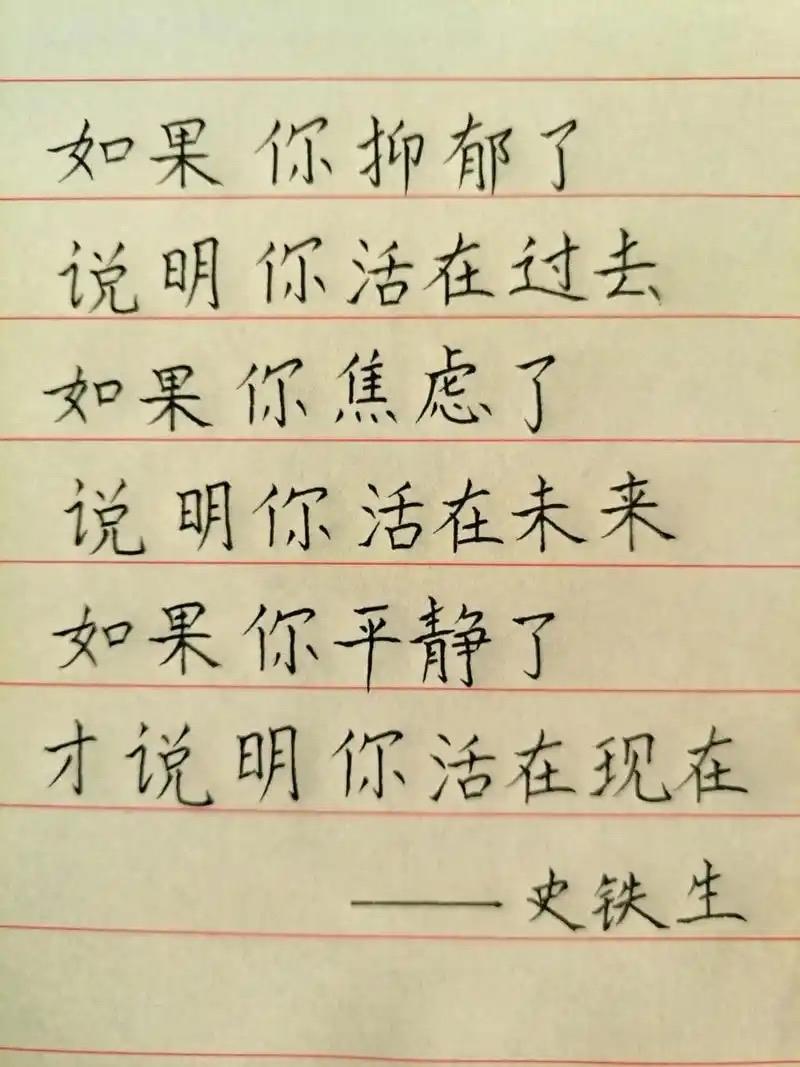 如果你抑郁了
说明你活在过去
如果你焦虑了
说明你活在未来
如果你平静了
才说明你活在现在
——史铁生